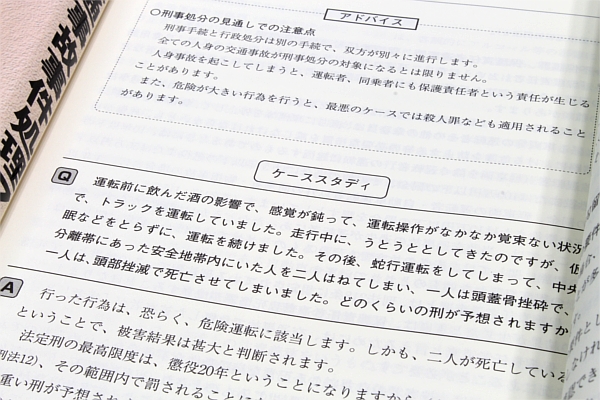 アドバイス
○刑事処分の見通しでの注意点
刑事手続と行政処分は別の手続で、双方が別々に進行します。
全ての人身の交通事故が刑事処分の対象になるとは限りません。
人身事故を起こしてしまうと、運転者、同乗者にも保護責任者という責任が生じる
ことがあります。
また、危険が大きい行為を行うと、最悪のケースでは殺人罪なども適用されること
があります。
ケーススタディ
Q 運転前に飲んだ酒の影響で、感覚が鈍って、運転操作がなかなか覚束ない状況
で、トラックを運転していました。走行中に、うとうととしてきたのですが、仮
眠などをとらずに、運転を続けました。その後、蛇行運転をしてしまって、中央
分離帯にあった安全地帯内にいた人を二人はねてしまい、一人は頭蓋骨挫砕で、
一人は、頭部挫滅で死亡させてしまいました。どのくらいの刑が予想されますか
A 行った行為は、恐らく、危険運転に該当します。しかも、二人が死亡している
ということで、被害結果は甚大と判断されます。
法定刑の最高限度は、懲役20年ということになりますから
刑法12)、その範囲内で罰されることに
重い刑が予想され
故事件処理